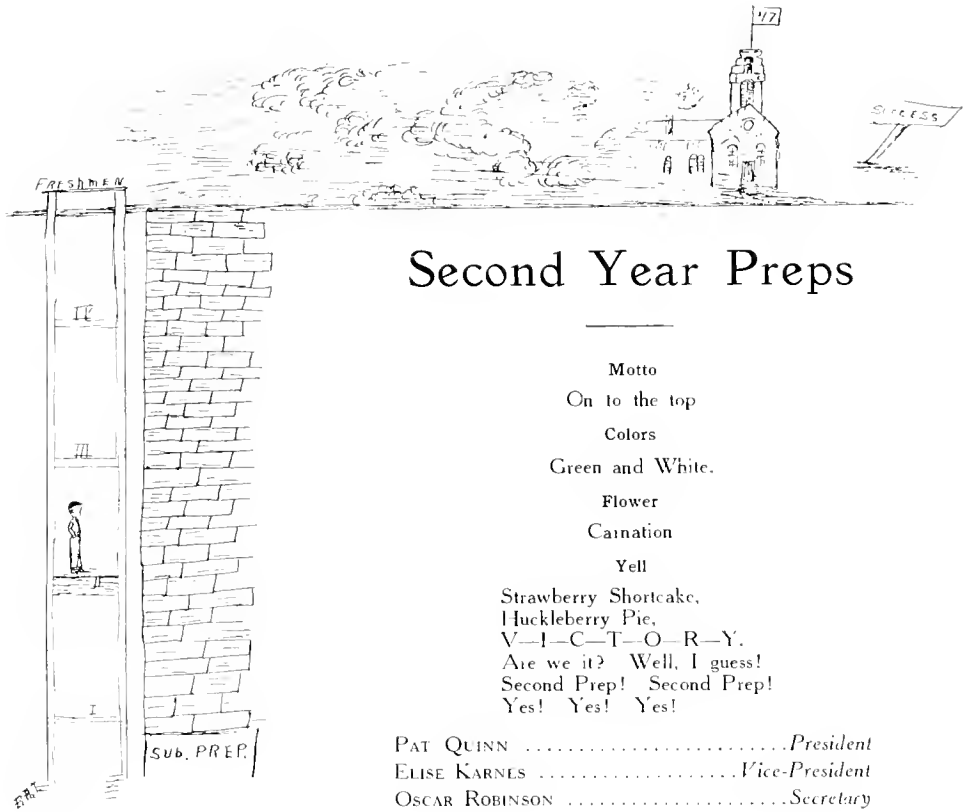 '17
SUCCESS
FRESHMEN
IV
III
II
I
SUB. PREP.
Second Year Preps
Motto
On to the top
Colors
Green and White.
Flower
Carnation
Yell
Strawberry Shortcake,
Huckleberry Pie,
V—I—C—T—O—R—Y.
Are we it? Well, I guess!
Second Prep! Second Prep!
Yes! Yes! Yes!
PAT QUINN ........................President
ELISE KARNES ..................Vice-President
OSCAR ROBINSON ....................Secretary